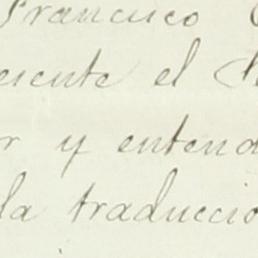 Francisco
esente el
r y entend
la traduccio